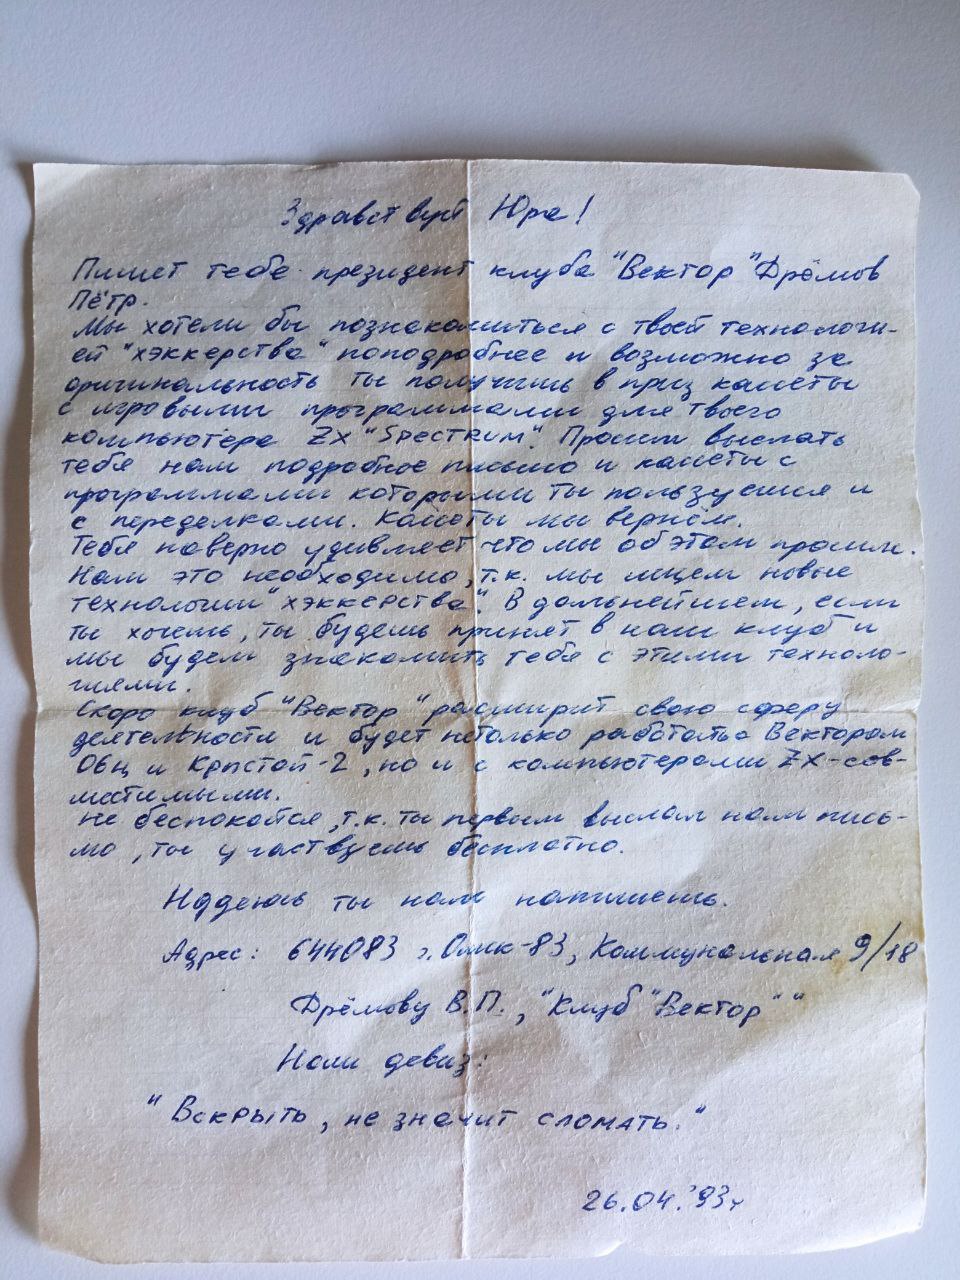 Здравствуй Юра!
Пишет тебе президент клуба "Вектор" Дрёмов
Пётр.
Мы хотели бы познакомиться с твоей технологи-
ей "хэккерства" поподробнее и возможно за
оригинальность ты получишь в приз касеты
с игровыми программами для твоего
компьютера ZX "Spectrum". Просим выслать
тебя нам подробное письмо и касеты с
программами которыми ты пользуешся и
с переделками. Касеты мы вернём.
Тебя наверно удивляет что мы об этом просим.
Нам это необходимо, т.к. мы ищем новые
технологии "хэккерства". В дальнейшем, если
ты хочешь, ты будешь принят в наш клуб и
мы будем знакомить тебя с этими техноло-
гиями.
Скоро клуб "Вектор" расширит свою сферу
деятельности и будет нетолько работать с Вектором
06ц и Кристой-2, но и с компьютерами ZX-сов-
мстимыми.
Не беспокойся, т.к. ты первым выслал нам пись-
мо, ты участвуешь бесплатно.
Надеюсь ты нам напишешь.
Адрес: 644083 г. Омк-83, Коммунальная 9/18
Дрёмову В.П., "Клуб "Вектор" "
Наш девиз:
"Вскрыть, не значит сломать."
26.04.'93г